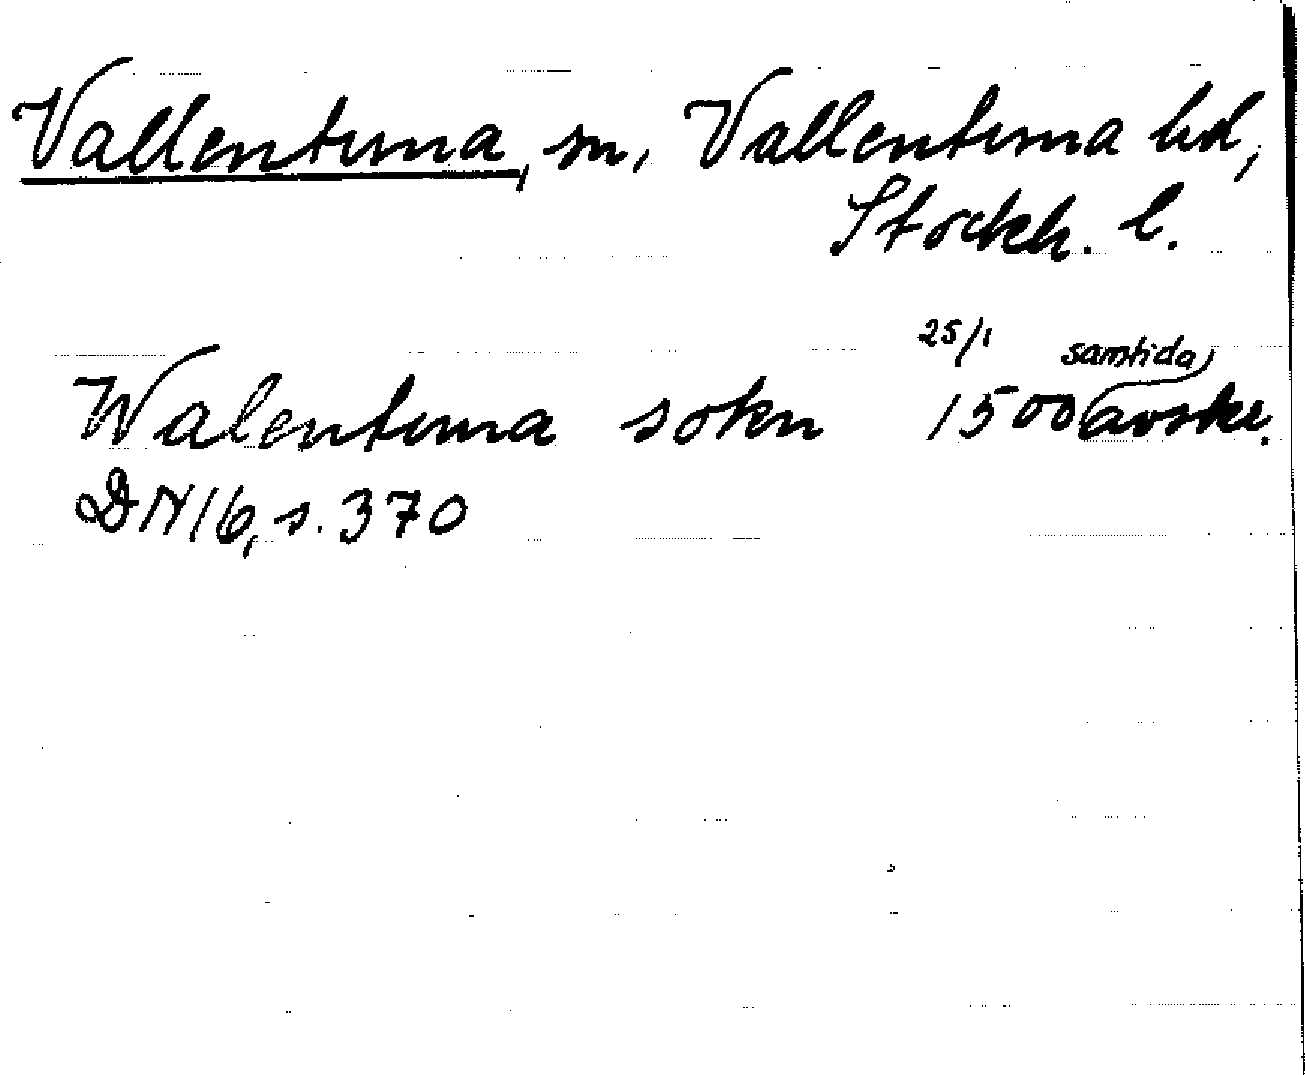 Vallentuna, sn, Vallentuna hd,
Stockh. l.
25/1 samtida
Walentuna sokn 1500 avskr.
DN 16, s. 370